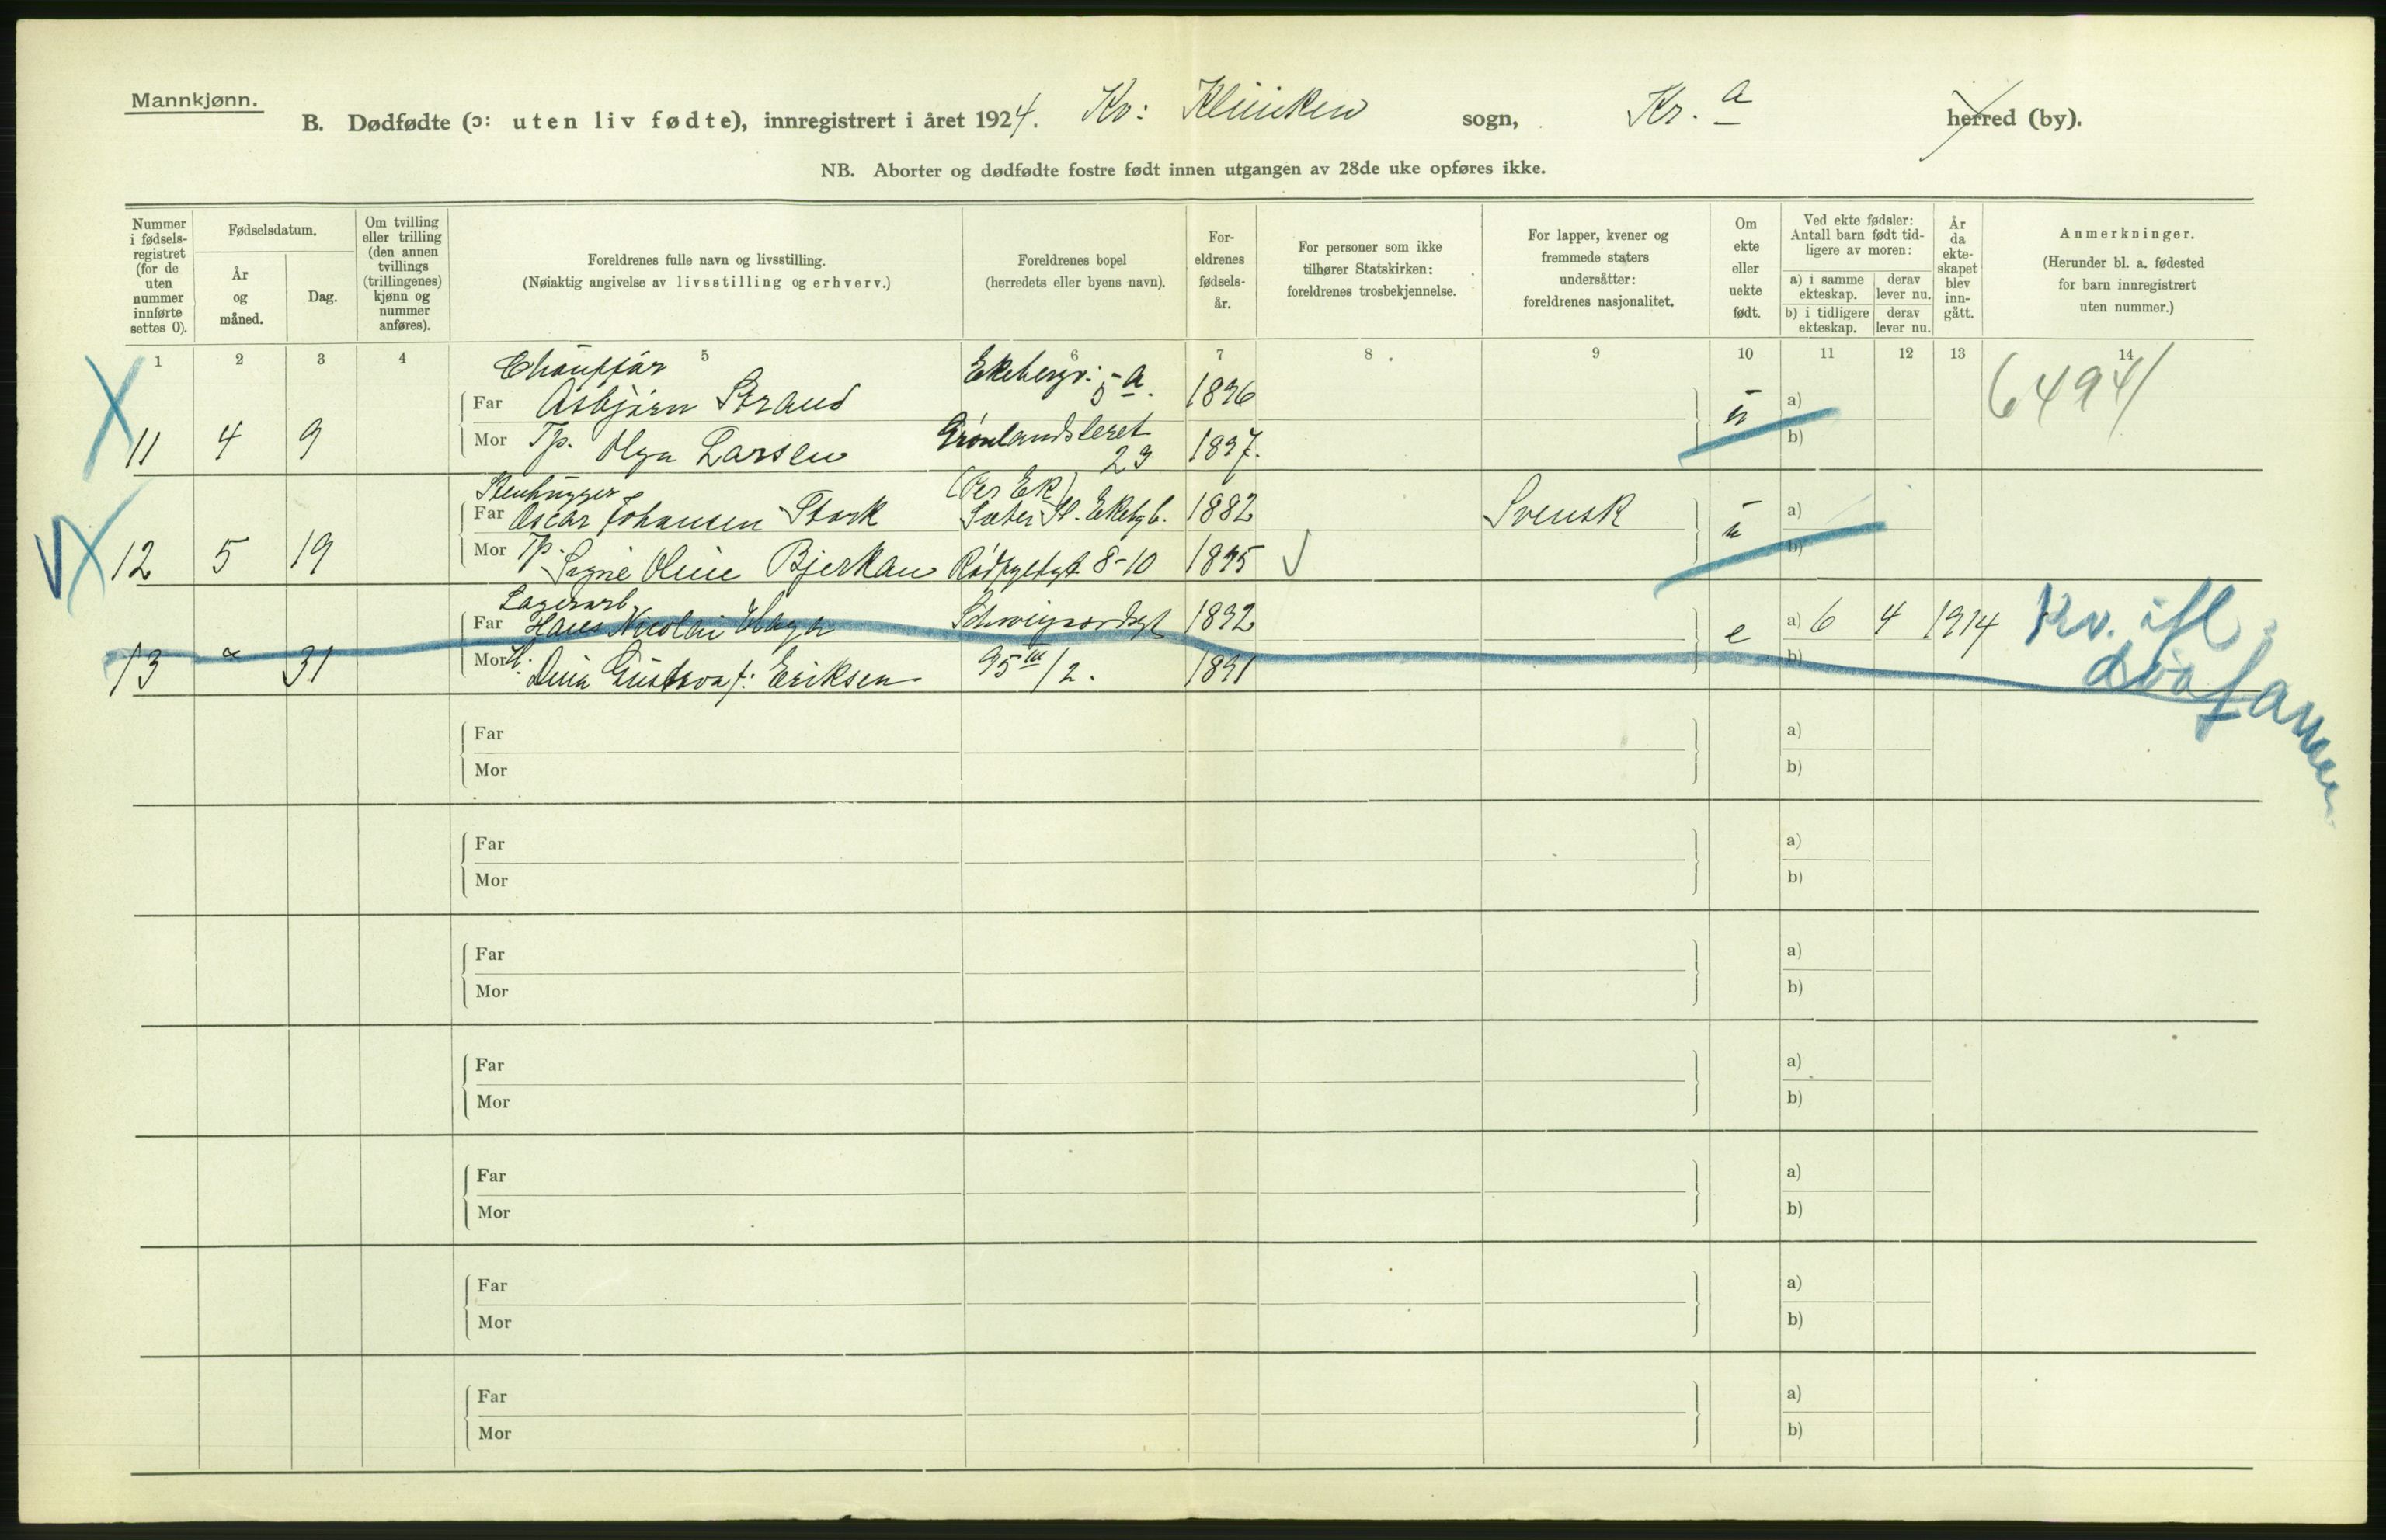 Mannkjønn.
B. Dødfødte (ɔ: uten liv fødte), innregistrert i året 1924. Kv: Kliniken sogn, Kr.a herred (by).
NB. Aborter og dødfødte fostre født innen utgangen av 28de uke opføres ikke.
Nummer i fødsels-registret (for de uten nummer innførte settes 0).
Fødselsdatum.
År og måned.
Dag.
Om tvilling eller trilling (den annen tvillings (trillingenes) kjønn og nummer anføres).
Foreldrenes fulle navn og livsstilling.
(Nøiaktig angivelse av livsstilling og erhverv.)
Foreldrenes bopel
(herredets eller byens navn).
For-eldrenes fødsels-år.
For personer som ikke tilhører Statskirken: foreldrenes trosbekjennelse.
For lapper, kvener og fremmede staters undersåtter: foreldrenes nasjonalitet.
Om ekte eller uekte født.
Ved ekte fødsler: Antall barn født tid-ligere av moren:
a) i samme ekteskap.
derav lever nu.
b) i tidligere ekteskap.
derav lever nu.
År da ekte-skapet blev inn-gått.
Anmerkninger.
(Herunder bl. a. fødested for barn innregistrert uten nummer.)
1 2 3 4 5 6 7 8 9 10 11 12 13 14
Chauffør Ekebergv. 5 a. 6494
Far Asbjørn Strand 1896 a)
11 4 9 Mor Tp. Olga Larsen Grønlandsleret 23 1897. u b)
Stenhugger
Far Oscar Johansen Stark Sæter St. Ekebgb. 1882 Svensk a)
12 5 19 Mor Tp. Signe Oline Bjerkan 8-10 1895 u b)
Lagerarb.
Far Hans Nicolai 1892 a) 6 4 1914 Kv. ifl.
13 " 31 Mor H. Gustava f: Eriksen 95 III/2. 1891 e b)
Far a)
Mor b)
Far a)
Mor b)
Far a)
Mor b)
Far a)
Mor b)
Far a)
Mor b)
Far a)
Mor b)
Far a)
Mor b)